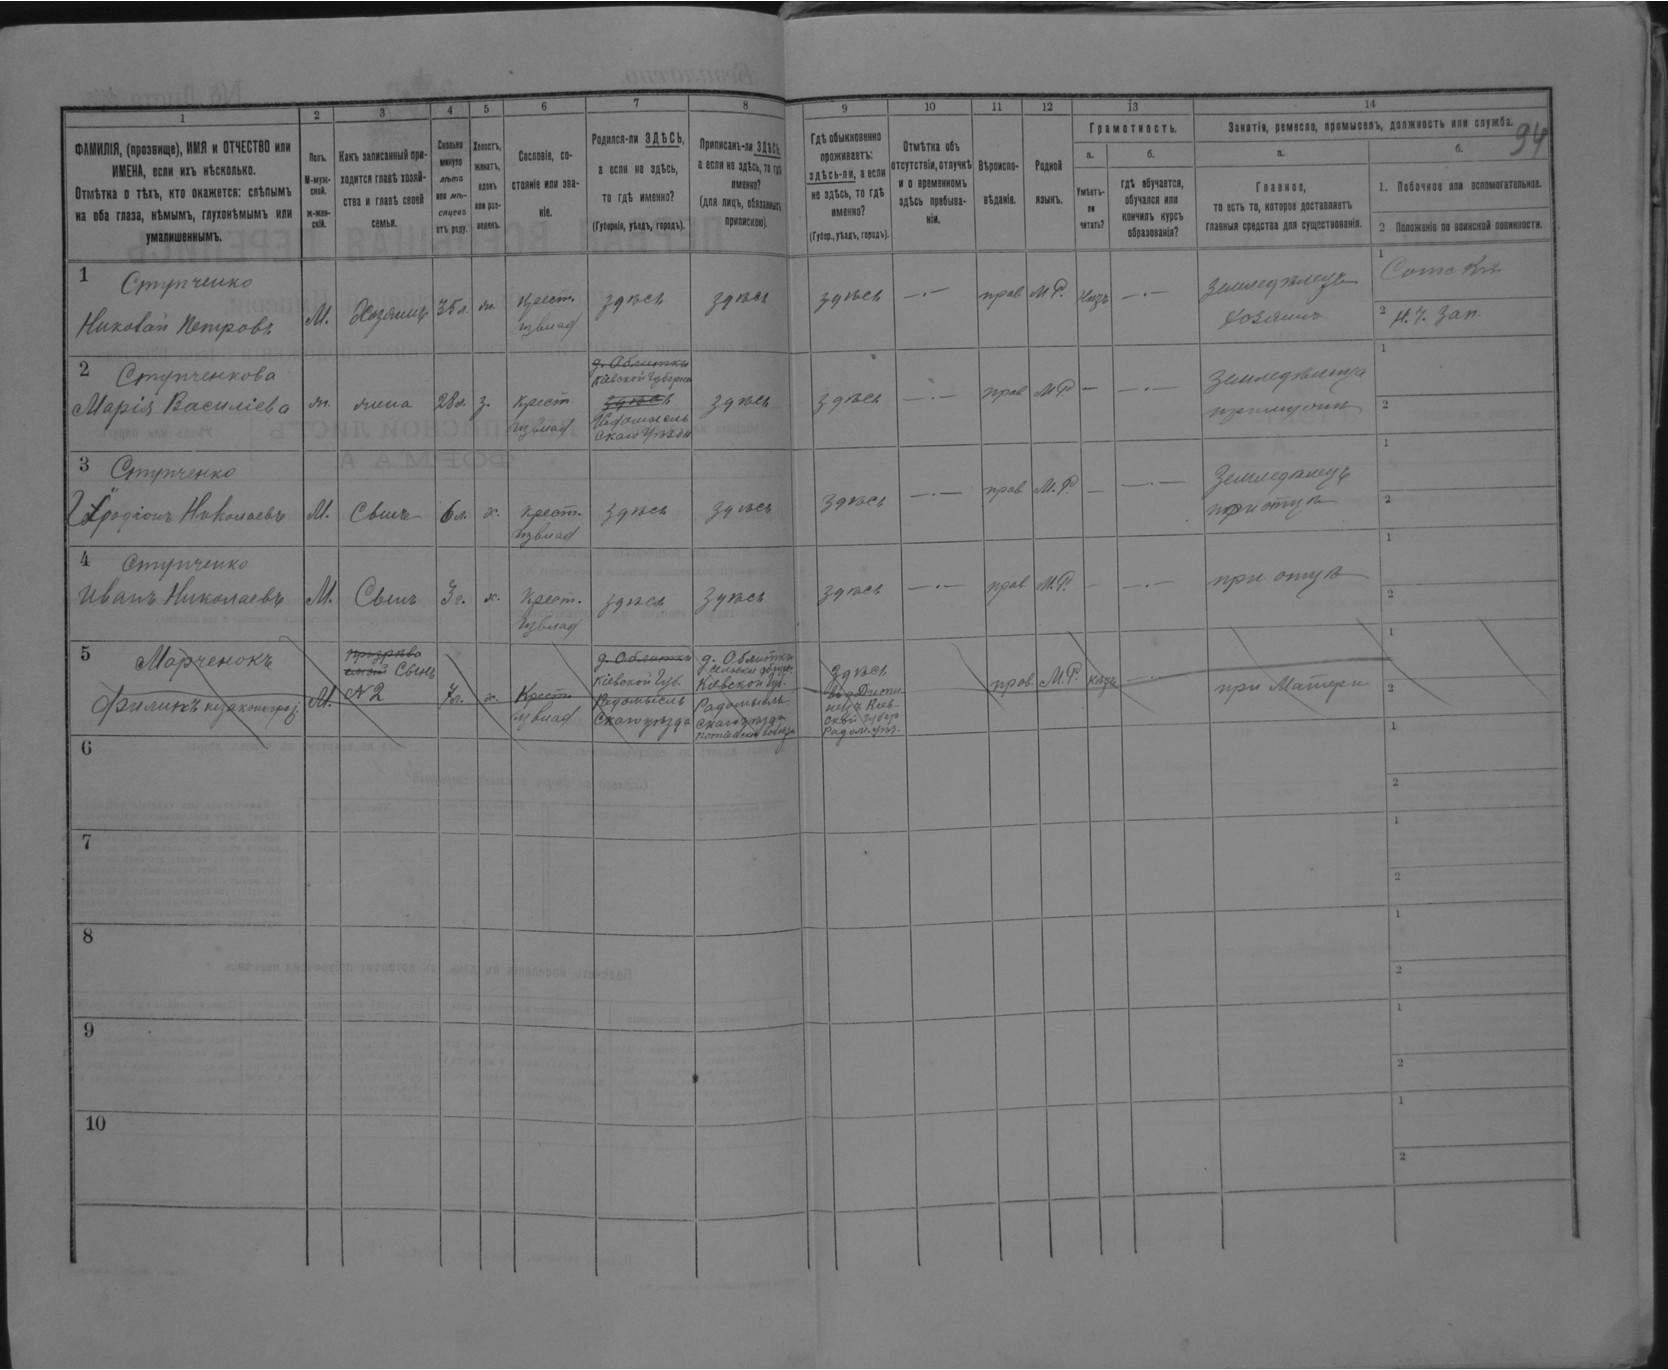 94
1 2 3 4 5 6 7 8 9 10 11 12 13 14
ФАМИЛІЯ, (прозвище), ИМЯ и ОТЧЕСТВО или
ИМЕНА, если ихъ нѣсколько.
Отмѣтка о тѣхъ, кто окажется: слѣпымъ
на оба глаза, нѣмымъ, глухонѣмымъ или
умалишеннымъ.
Полъ.
М-муж-
ской.
ж-жен-
скій.
Какъ записанный при-
ходится главѣ хозяй-
ства и главѣ своей
семьи.
Сколько
минуло
лѣтъ
или мѣ-
сяцевъ
отъ роду.
Холостъ,
женатъ,
вдовъ
или раз-
веденъ.
Сословіе, со-
стояніе или зва-
ніе.
Родился-ли ЗДѢСЬ,
а если не здѣсь,
то гдѣ именно?
(Губернія, уѣздъ, городъ).
Приписанъ-ли ЗДѢСЬ,
а если не здѣсь, то гдѣ
именно?
(для лицъ, обязанныхъ
припискою).
Гдѣ обыкновенно
проживаетъ:
здѣсь-ли, а если
не здѣсь, то гдѣ
именно?
(Губер., уѣздъ, городъ).
Отмѣтка объ
отсутствіи, отлучкѣ
и о временномъ
здѣсь пребыва-
ніи.
Вѣроиспо-
вѣданіе.
Родной
языкъ.
Грамотность.
а.
Умѣетъ-
ли
читать?
б.
гдѣ обучается,
обучался или
кончилъ курсъ
образованія?
Занятіе, ремесло, промыселъ, должность или служба.
а.
Главное,
то есть то, которое доставляетъ
главныя средства для существованія.
б.
1. Побочное или вспомогательное.
2 Положеніе по воинской повинности.
1
Ступченко
Николай Петровъ
М. Хозяинъ 35 л. ж.
Крест.
изъ влад
здѣсь здѣсь здѣсь —·— прав М.Р. —·—
Земледѣлецъ
хозяинъ
1
2 н.ч. Зап.
2
Ступченкова
Марія Василіева
ж. жена 28 л. з.
Крест.
изъ влад
Кіевской Губерніи
здѣсь
Радомысль
скаго Уѣзда
здѣсь здѣсь —·— прав М.Р. — —·—
1
2
3
Ступченко
Иродіонъ Николаевъ
М. Сынъ 6 л. х.
Крест.
изъ влад
здѣсь здѣсь здѣсь —·— прав М.Р. — —·—
Земледѣлецъ
при отцѣ
1
2
4
Ступченко
Иванъ Николаевъ
М. Сынъ 3 г. х.
Крест.
изъ влад
здѣсь здѣсь здѣсь —·— прав М.Р. — —·—
при отцѣ
1
2
5
Марченокъ
Филипъ незаконорож
М.
Сынъ
N 2
7 л. х.
Крест.
изъ влад
д. Облитки
Кіевской Губ.
Радомысль
скаго уѣзда
д. Облитки
Кіевской Губ.
Радомысль
скаго уѣзда
здѣсь
прав. М.Р. —·—
при Матери
1
2
6
1
2
7
1
2
8
1
2
9
1
2
10
1
2